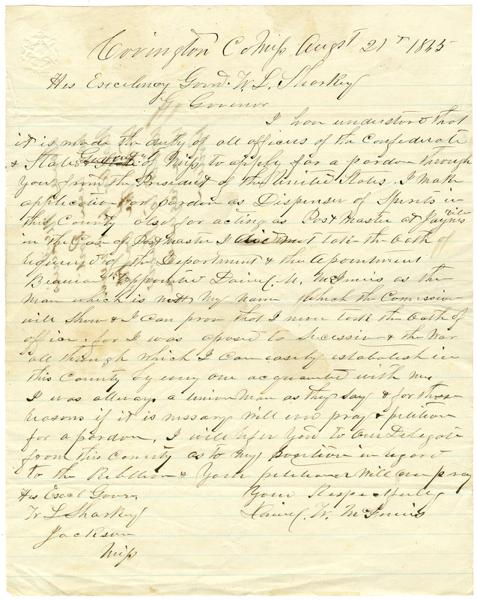 Covington Co Miss Augst 21st 1865
His Excelency Govr. W. L. Sharkey
Governor
I have understood that
it is made the duty of all officers of the Confederate
& State of Miss to apply for a pardon through
You from the President of the United States. I make
application for pardon as Dispenser of Spirits in
this County also for acting as Post Master at Jaynes
in the of Postmaster I did not take the oath
of the Department & the apointment
appointed Daniel M. McInnis as the
man which is not my name which the Comission
will Show & I can prove that I never took the oath of
office, for I was oposed to Secession & the War
all through which I can easily establish in
this County by any one acquainted with me
I was allways a union man as they say & for these
reasons if it is nessary will ever pray & petition
for a pardon, I will refer You to our Deligate
from this County as to my position in regard
to the Rebllion & Your petitioner will ever pray
His Excel Govr
Your Respectfully
W L Sharkey
Daniel W. McInnis
Jackson
Miss